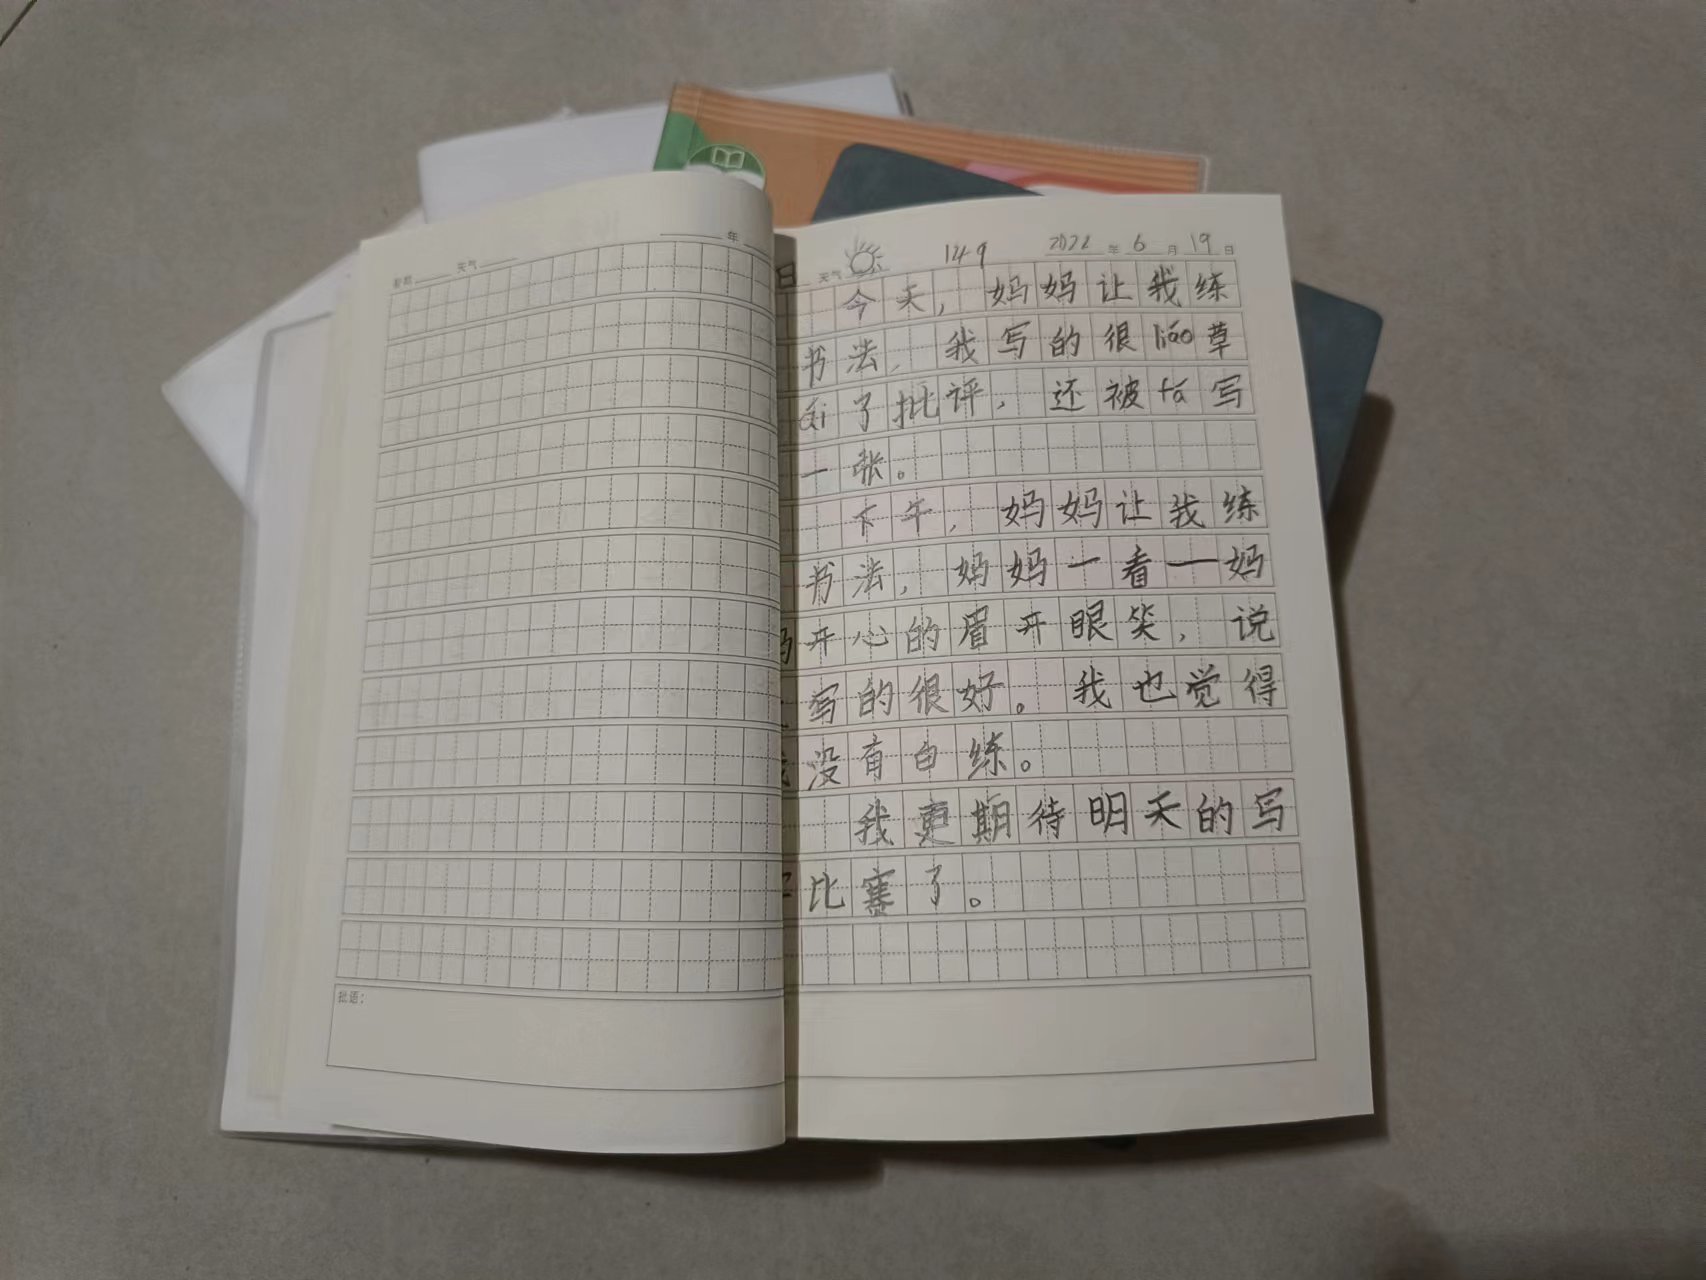 年
星期 天气
日 天气 149 2022 年 6 月 19 日
今天，妈妈让我练
书法，我写的很liáo草
ái了批评，还被fá写
一张。
下午，妈妈让我练
书法，妈妈一看一妈
妈开心的眉开眼笑，说
写的很好。我也觉得
我没有白练。
我更期待明天的写
字比赛了。
批语：